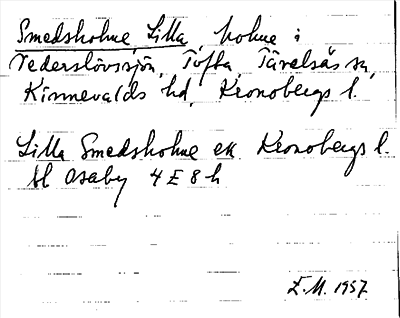 Smedsholme, Lilla, holme i
Vederslövssjön, Tofta, Tävelsås sn,
Kinnevalds hd, Kronobergs l.
Lilla Smedsholme ek Kronobergs l.
bl Osaby 4 E 8 h
E.M. 1957